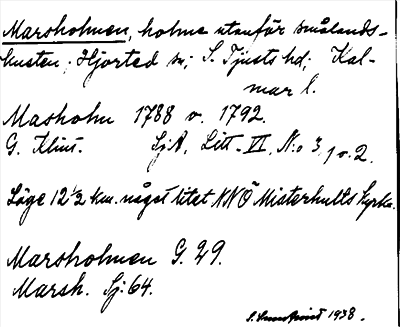 Marsholmen, holme utanför smålands-
kusten; Hjorted sn; S. Tjusts hd; Kal-
mar l.
Masholm 1788 o. 1792.
G. Klint. SjA, Litt. VI, No 3, 1 o. 2.
Läge 12½ km. något litet NNÖ Misterhults kyrka.
Marsholmen G. 29.
Marsh. Sj: 64.
1938.